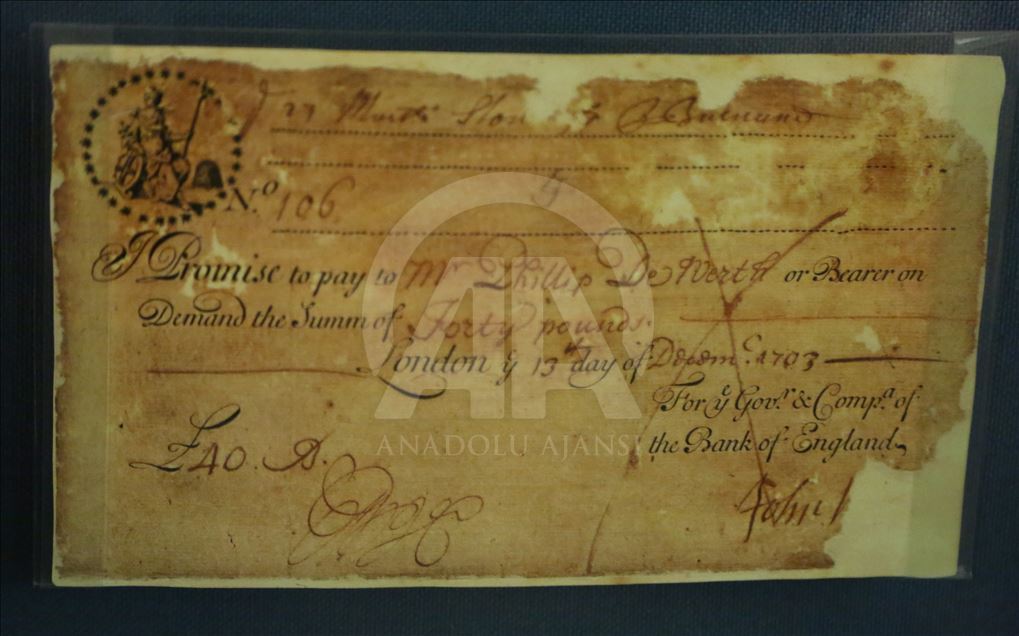 N.º 106
I Promise to pay to Mr Phillip De Werth or Bearer on
Demand the Summ of Forty pounds.
London ye 13th day of Decem.r 1703
For ye Gov.r & Comp.a of
the Bank of England
£40.
John
ANADOLU AJANSI